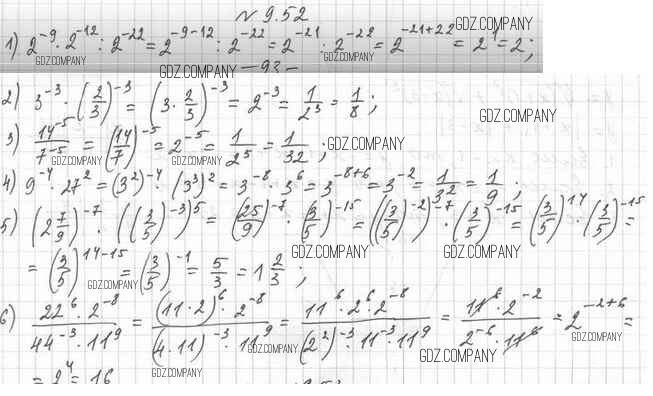 № 9.52
GDZ.COMPANY
1) 2^{-9} · 2^{-12} : 2^{-22} = 2^{-9-12} : 2^{-22} = 2^{-21} : 2^{-22} = 2^{-21+22} = 2^1 = 2;
GDZ.COMPANY GDZ.COMPANY
GDZ.COMPANY – 93 –
2) 3^{-3} · (2/3)^{-3} = (3 · 2/3)^{-3} = 2^{-3} = 1/2^3 = 1/8; GDZ.COMPANY
3) 14^{-5}/7^{-5} = (14/7)^{-5} = 2^{-5} = 1/2^5 = 1/32; GDZ.COMPANY
GDZ.COMPANY GDZ.COMPANY
4) 9^{-4} · 27^2 = (3^2)^{-4} · (3^3)^2 = 3^{-8} · 3^6 = 3^{-8+6} = 3^{-2} = 1/3^2 = 1/9;
5) (2 7/9)^{-7} · ((3/5)^{-3})^5 = (25/9)^{-7} · (3/5)^{-15} = ((3/5)^{-2})^{-7} · (3/5)^{-15} = (3/5)^{14} · (3/5)^{-15} =
GDZ.COMPANY GDZ.COMPANY
= (3/5)^{14-15} = (3/5)^{-1} = 5/3 = 1 2/3;
GDZ.COMPANY
6) 22^6 · 2^{-8} / 44^{-3} · 11^9 = (11 · 2)^6 · 2^{-8} / (4 · 11)^{-3} · 11^9 = 11^6 · 2^6 · 2^{-8} / (2^2)^{-3} · 11^{-3} · 11^9 = 11^6 · 2^{-2} / 2^{-6} · 11^6 = 2^{-2+6} =
GDZ.COMPANY GDZ.COMPANY GDZ.COMPANY
GDZ.COMPANY
= 2^4 = 16